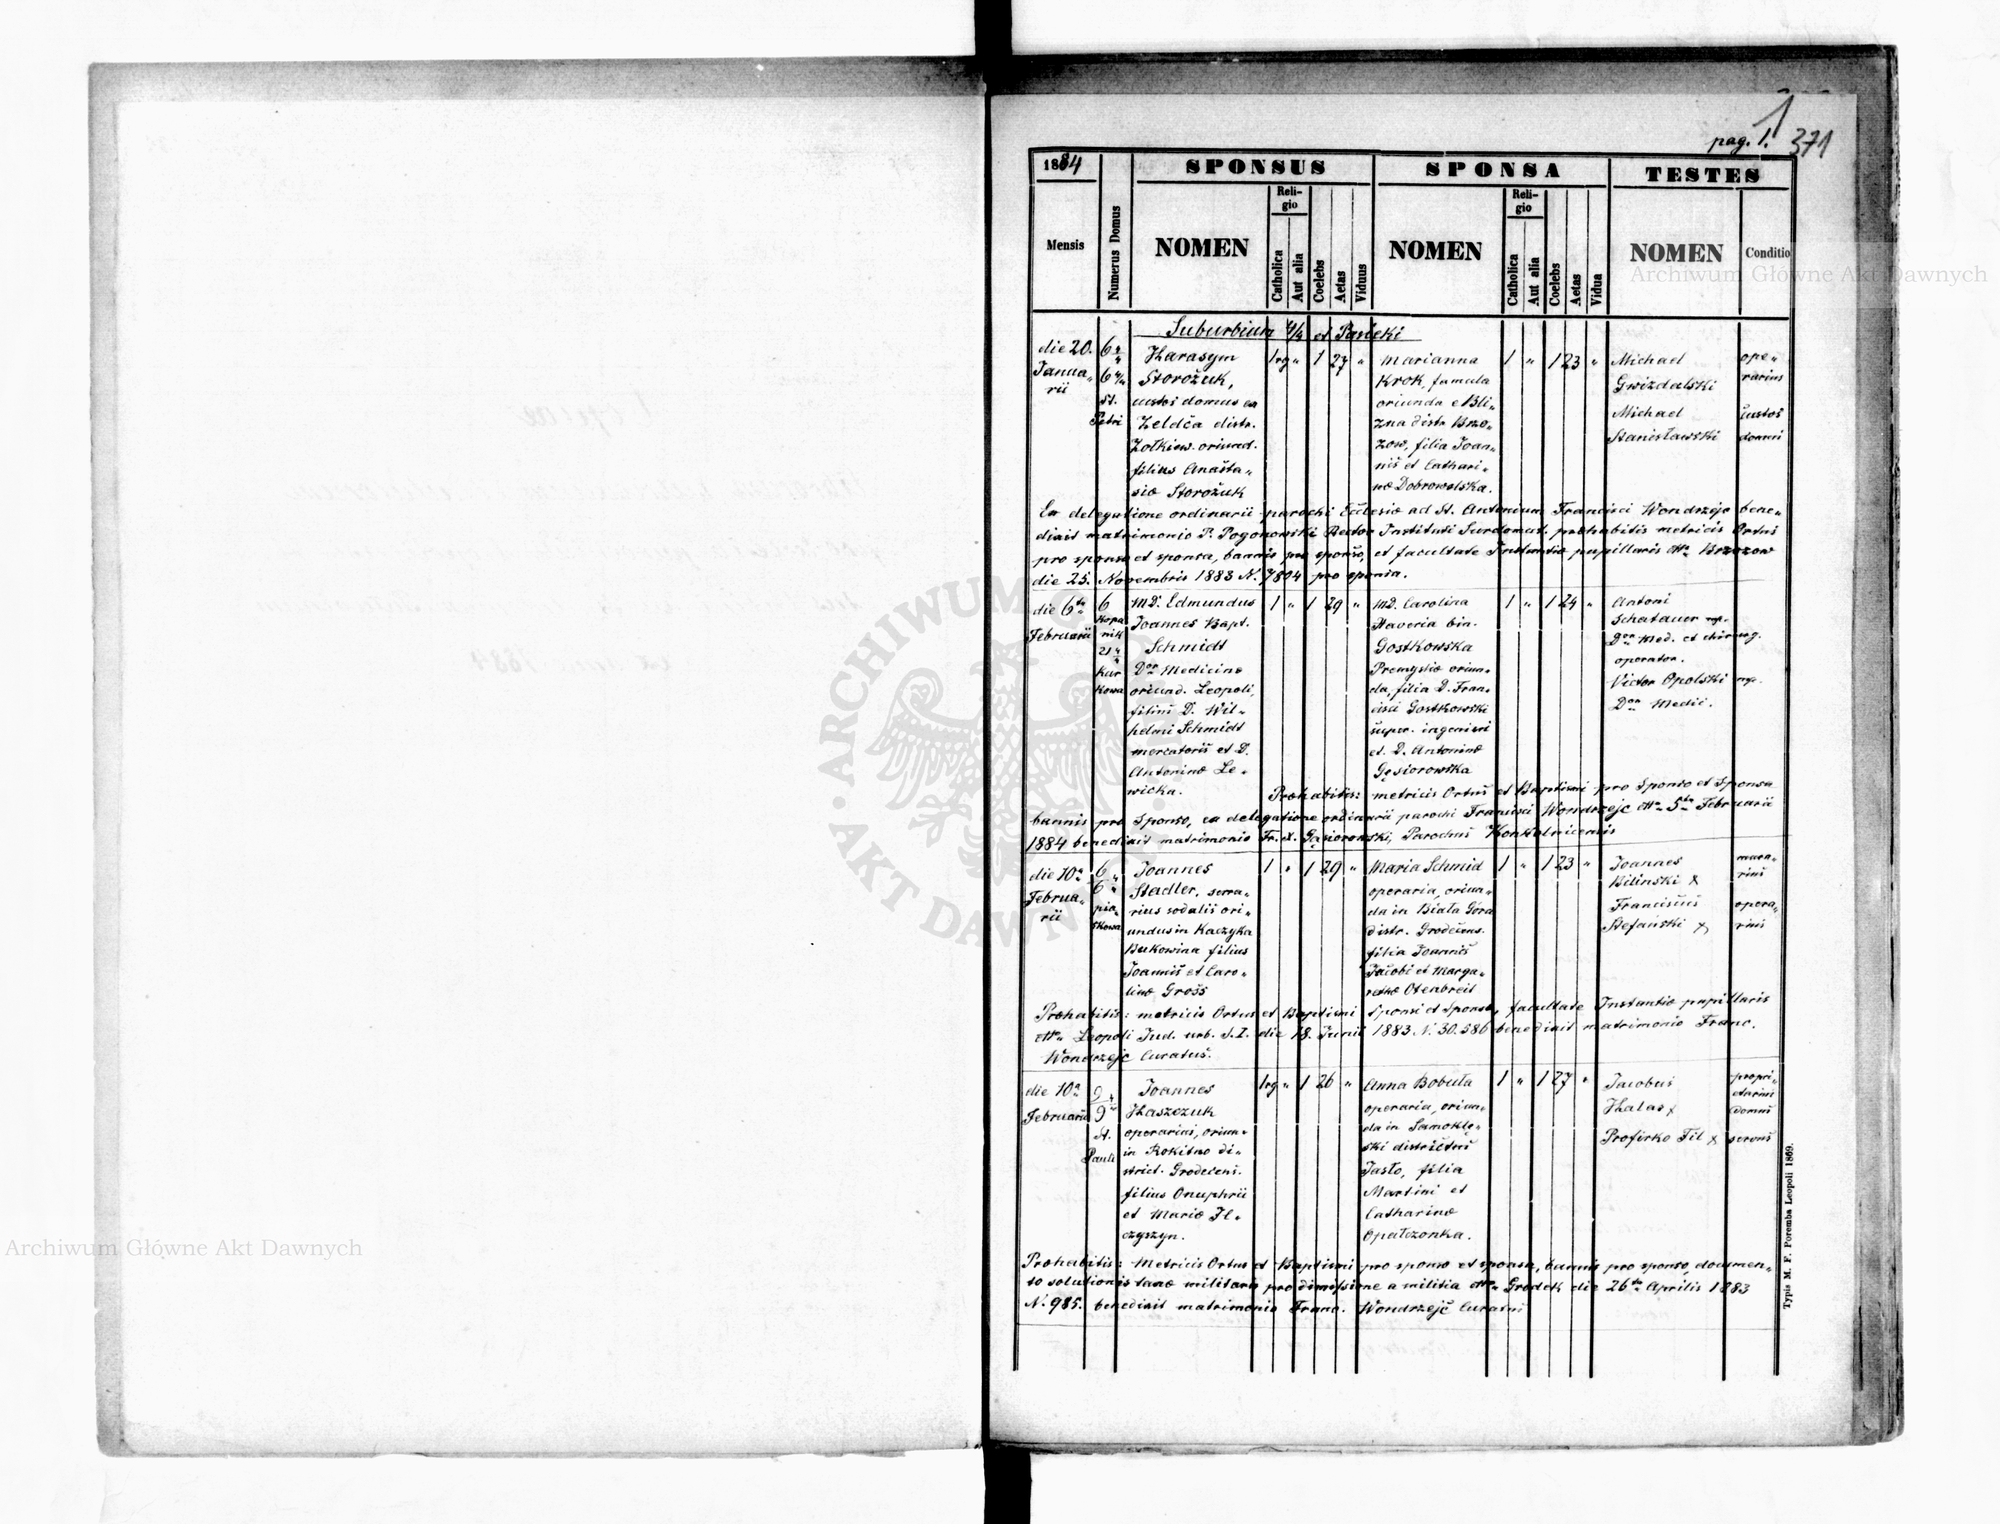 pag. 1.
1
371
1884
SPONSUS
SPONSA
TESTES
Mensis
Numerus Domus
NOMEN
Religio
Catholica
Aut alia
Coelebs
Aetas
Viduus
NOMEN
Religio
Catholica
Aut alia
Coelebs
Aetas
Vidua
NOMEN
Conditio
Suburbium 4/4 et Pasieki
die 20.
Janua„
rii
6 4/4
St.
Petri
Harasym
Storožuk,
custos domus ex
Zeldča distr.
Żołkiew. oriund.
filius Anasta„
siæ Storožuk
1rg „ 1 27 „
Marianna
Krok, famula
oriunda e Bli„
zna distr. Brzo„
zow, filia Joan„
nis et Cathari„
næ Dobrowolska.
1 „ 1 23 „
Michael
Gwizdalski
Michael
Stanisławski
ope„
rarius
Custos
domus
Ex delegatione ordinarii parochi Ecclesiæ ad St. Antonium Francisci Wondrzejc bene„
dixit matrimonio P. Pogonowski Rector Instituti Surdomut. præhabitis metricis Ortus
pro sponso et sponsa, bannis pro sponso, et facultate Instantiæ pupillaris dtto Brzozow
die 25. Novembris 1883 N. 7804 pro sponsa.
die 6ta
Februarii
6
Kopa
nik
21 4/4
Kur
kowa
MD. Edmundus
Joannes Bapt.
Schmidt
Dor Medicinæ
oriund. Leopoli,
filius D. Wil„
helmi Schmidt
mercatoris et D.
Antoninæ Le„
wicka.
1 „ 1 29 „
MD. Carolina
Xaveria bin.
Gostkowska
Premysliæ oriun„
da, filia D. Fran„
cisci Gostkowski
super. ingenieri
et D. Antoninæ
Gęsiorowska
1 „ 1 24 „
Antoni
Schatauer mp.
Dor Med. et chirurg.
operator.
Victor Opolski mp.
Dor Medic.
Præhabitis: metricis Ortus et Baptismi pro Sponso et Sponsa
bannis pro Sponso, ex delegatione ordinarii parochi Francisci Wondrzejc dtto 5ta Februarii
1884 benedixit matrimonio Fr. X. Gąsiorowski, Parochus Konkolnicensis
die 10a
Februa„
rii
6
6 4/4
pia„
skowa
Joannes
Stadler, serra„
rius sodalis ori„
undus in Kaczyka
Bukowina filius
Joannis et Caro„
linæ Gross
1 „ 1 29 „
Maria Schmid
operaria, oriun„
da in Biała Góra
distr. Grodecens.
filia Joannis
Jacobi et Marga„
rethæ Otenbreit
1 „ 1 23 „
Joannes
Bilinski x
Franciscus
Stefański x
mura„
rius
opera„
rius
Præhabitis: metricis Ortus et Baptismi Sponsi et Sponsæ, facultate Instantiæ pupillaris
dtto Leopoli Jud. urb. S. I. die 18. Junii 1883 N. 30.586 benedixit matrimonio Franc.
Wondrzejc Curatus.
die 10a
Februarii
9
9 4/4
St.
Pauli
Joannes
Haszczuk
operarius, oriun„
in Rokitno di„
strict. Grodecens.
filius Onuphrii
et Mariæ Il„
czyszyn.
1rg „ 1 26 „
Anna Bobuła
operaria, oriun„
da in Samoklę„
ski districtus
Jasło, filia
Martini et
Catharinæ
Opałczonka.
1 „ 1 27 „
Jacobus
Halas x
Profirko Fil x
propri„
etarius
domus
servus
Præhabitis: Metricis Ortus et Baptismi pro sponso et sponsa, bannis pro sponso, documen„
to solutionis taxæ militaris pro dimissione a militia dtto Grodek die 26ta Aprilis 1883
N. 985. benedixit matrimonio Franc. Wondrzejc Curatus
Typis M. F. Poremba Leopoli 1869.
Archiwum Główne Akt Dawnych
Archiwum Główne Akt Dawnych
ARCHIWUM GŁÓWNE
AKT DAWNYCH